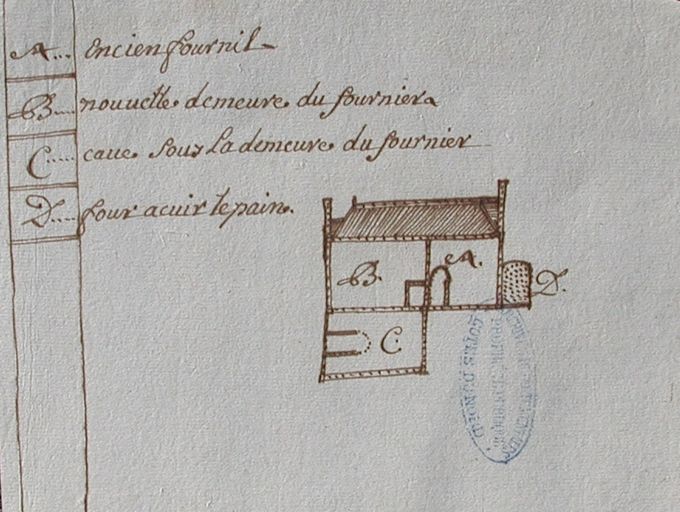 A... Encien fournil
B.... nouuelle demeure du fournier
C..... caue sous la demeure du fournier
D.... four a cuir le pain.
A.
B.
D.
C.
COTES DU NORD